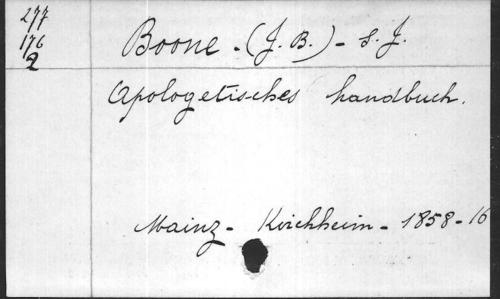 277
176
2
Boone - (J. B.) - S. J.
Apologetisches handbuch.
Mainz - Kirchheim - 1858 - 16